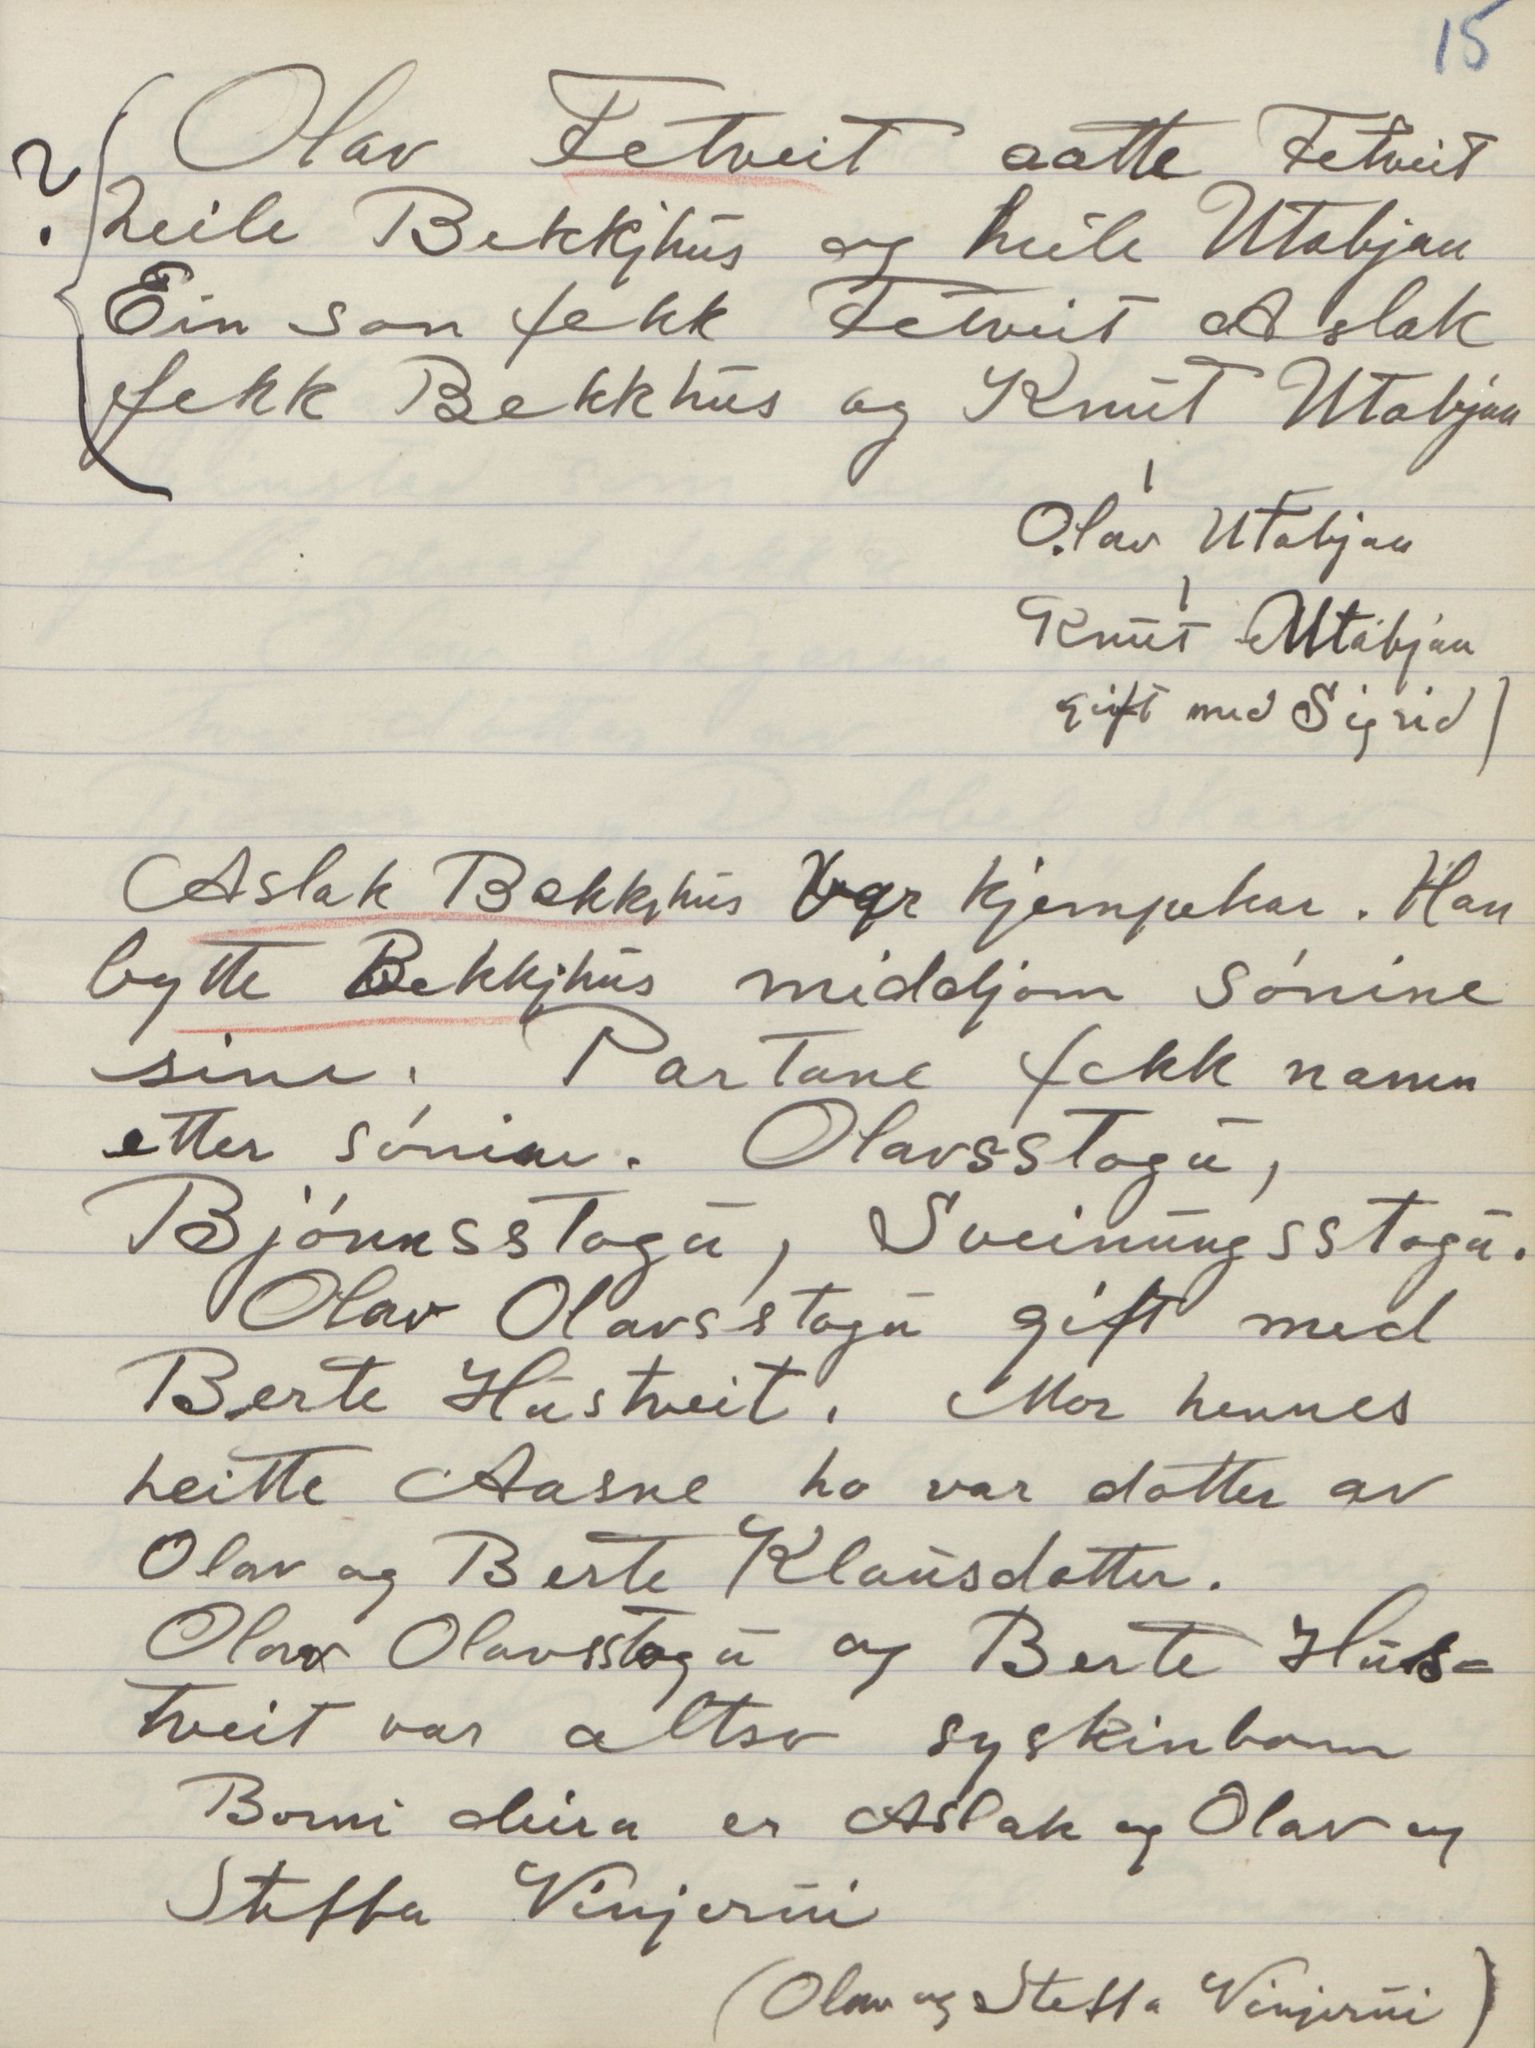 15
? Olav Fetveit aatte Fetveit
heile Bekkjhus og heile Utabjaa
Ein son fekk Fetveit Aslak
fekk Bekkhus og Knut Utabjaa
Olav Utabjaa
Knut Utabjaa
gift med Sigrid)
Aslak Bekkjhus var kjempekar. Han
bytte Bekkjhus middjom sónine
sine. Partane fekk namn
etter sónine. Olavsstogu,
Bjónnsstogu, Sveinungsstogu.
Olav Olavsstogu gift med
Berte Hustveit. Mor hennes
heitte Aasne ho var dotter av
Olav og Berte Klausdotter.
Olav Olavsstogu og Berte Hus=
tveit var altso syskinbonn
Bonni deira er Aslak og Olav og
Steffa Vinjerui
(Olav og Steffa Vinjerui)